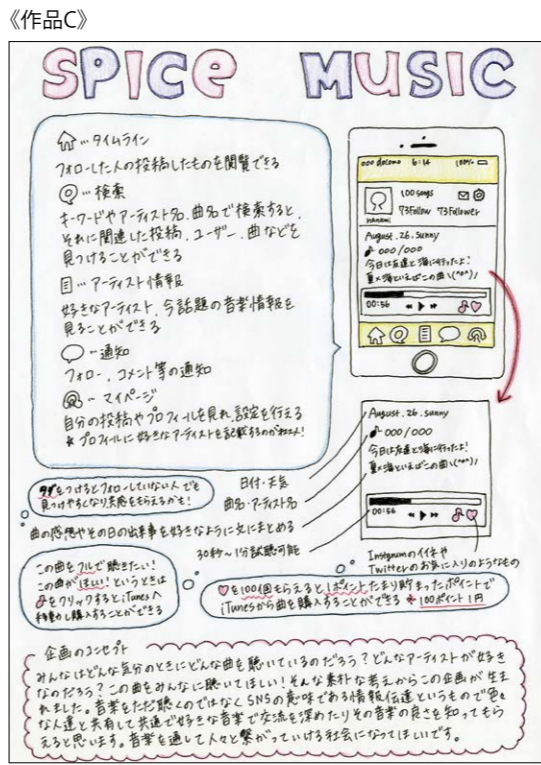 《作品C》
SPICE MUSIC
…タイムライン
フォローした人の投稿したものを閲覧できる
…検索
キーワードやアーティスト名、曲名で検索すると、
それに関連した投稿、ユーザー、曲などを
見つけることができる
…アーティスト情報
好きなアーティスト、今話題の音楽情報を
見ることができる
…通知
フォロー、コメント等の通知
…マイページ
自分の投稿やプロフィールを見れ、設定を行える
★プロフィールに好きなアーティストを記載するのがおススメ!
docomo 6:14 100%
100songs
73Follow 73Follower
August.26.sunny
000/000
今日は友達と海に行ったよ!
夏×海といえばこの曲\(^o^)/
00:56
August.26.sunny
000/000
今日は友達と海に行ったよ!
夏×海といえばこの曲\(^o^)/
00:56
タグをつけるとフォローしていない人でも
見つけやすくなり共感をもらえるかも!
日付・天気
曲名・アーティスト名
曲の感想やその日の出来事を好きなように文にまとめる
30秒~1分試聴可能
Instagramのイイネや
Twitterのお気に入りのようなもの
この曲をフルで聴きたい!
この曲がほしい!というときは
をクリックするとiTunesへ
移動し購入することができる
♡を100個もらえると1ポイントたまり貯まったポイントで
iTunesから曲を購入することができる ★100ポイント1円
企画のコンセプト
みんなはどんな気分のときにどんな曲を聴いているのだろう?どんなアーティストが好き
なのだろう?この曲をみんなに聴いてほしい!そんな素朴な考えからこの企画が生ま
れました。音楽をただ聴くのではなくSNSの意味である情報伝達というもので色々
な人達と共有して共通で好きな音楽で交流を深めたりその音楽の良さを知ってもら
えると思います。音楽を通して人々と繋がっていける社会になってほしいです。